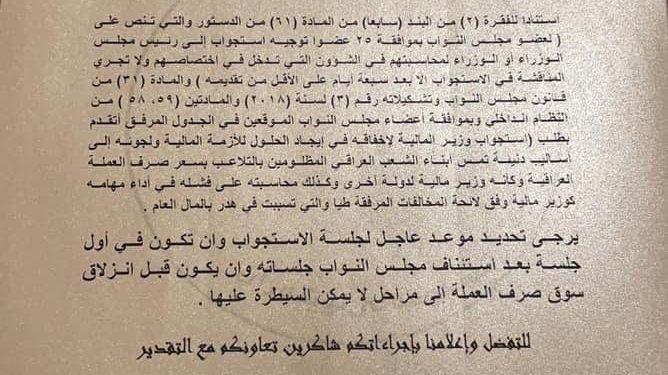 استنادا للفقرة (٢) من البند (سابعا) من المادة (٦١) من الدستور والتي تنص على
( لعضو مجلس النواب بموافقة ٢٥ عضوا توجيه استجواب إلى رئيس مجلس
الوزراء او الوزراء لمحاسبتهم في الشؤون التي تدخل في اختصاصهم ولا تجري
المناقشة في الاستجواب الا بعد سبعة أيام على الأقل من تقديمه ) والمادة (٣١) من
قانون مجلس النواب وتشكيلاته رقم (٣) لسنة (٢٠١٨) والمادتين (٥٩، ٥٨) من
النظام الداخلي وبموافقة أعضاء مجلس النواب الموقعين في الجدول المرفق أتقدم
بطلب (استجواب وزير المالية لاخفاقه في إيجاد الحلول للأزمة المالية ولجوئه إلى
أساليب دنيئة تمس أبناء الشعب العراقي المظلومين بالتلاعب بسعر صرف العملة
العراقية وكأنه وزير مالية لدولة أخرى وكذلك محاسبته على فشله في أداء مهامه
كوزير مالية وفق لائحة المخالفات المرفقة طيا والتي تسببت في هدر بالمال العام .
يرجى تحديد موعد عاجل لجلسة الاستجواب وان تكون في أول
جلسة بعد استئناف مجلس النواب جلساته وان يكون قبل انزلاق
سوق صرف العملة الى مراحل لا يمكن السيطرة عليها .
للتفضل وإعلامنا بإجراءاتكم شاكرين تعاونكم مع التقدير